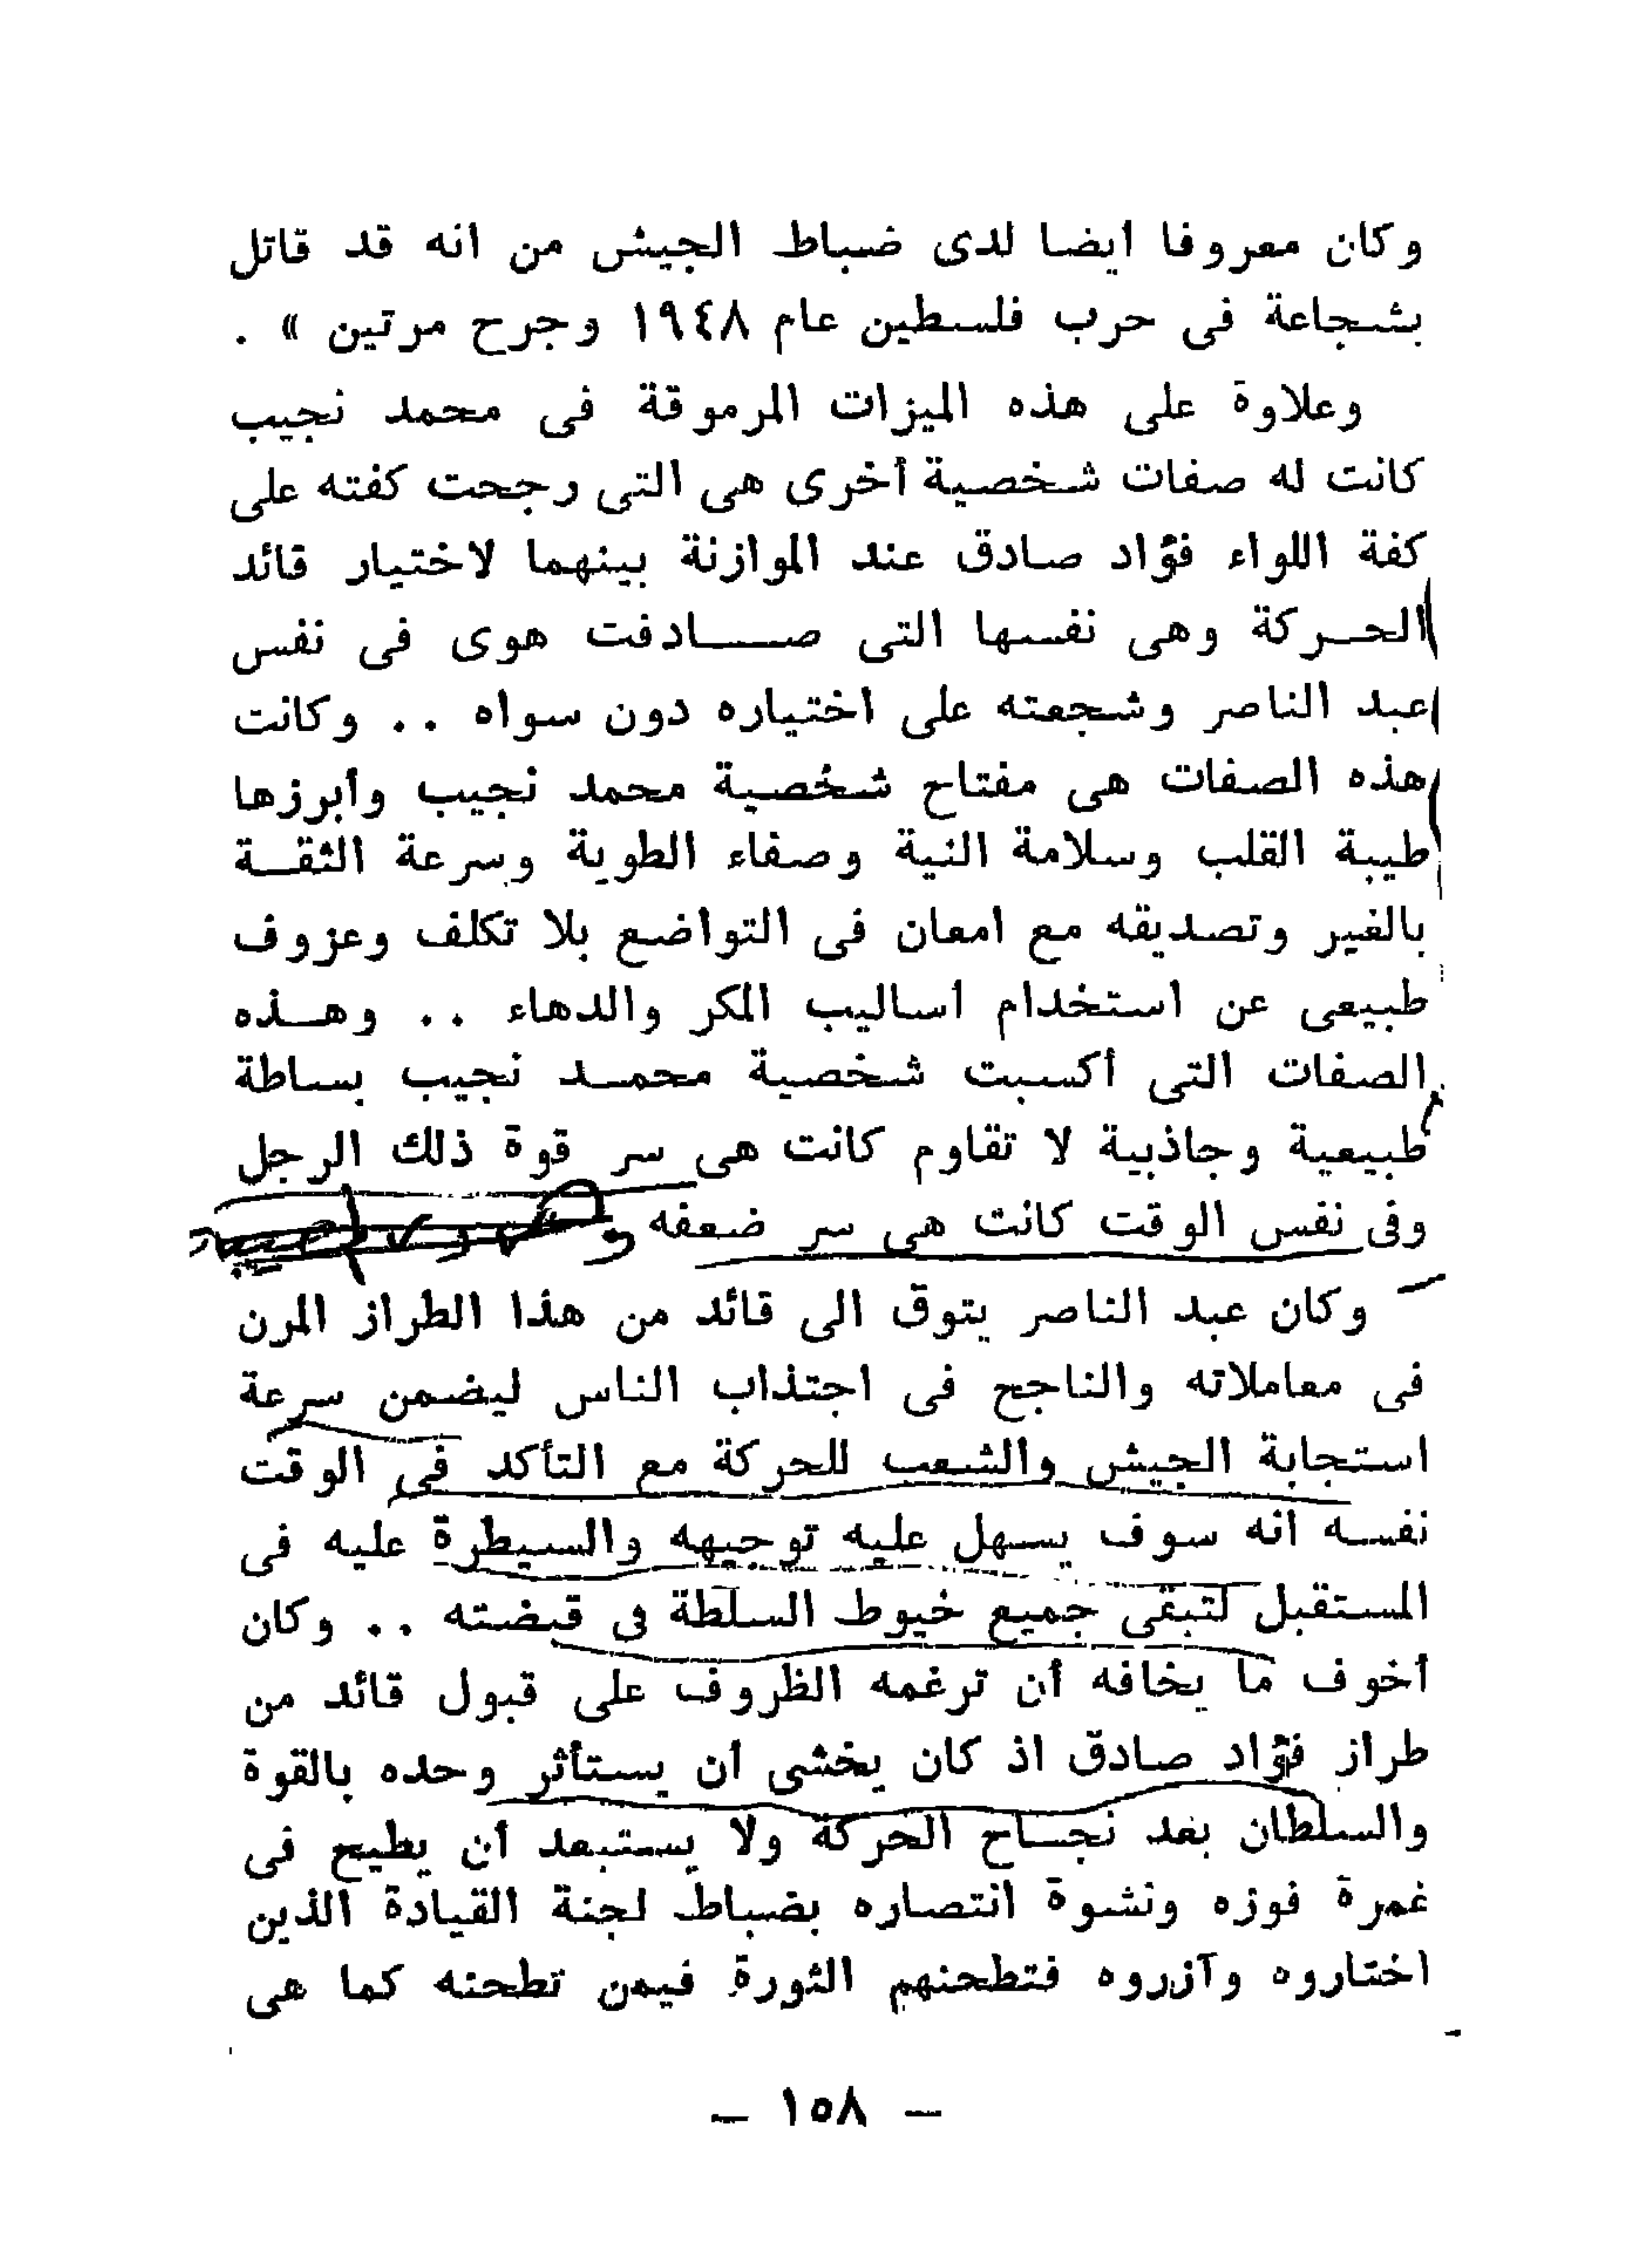 وكان معروفا ايضا لدى ضباط الجيش من انه قد قاتل
بشجاعة فى حرب فلسطين عام ١٩٤٨ وجرح مرتين » .
وعلاوة على هذه الميزات المرموقة فى محمد نجيب
كانت له صفات شخصية أخرى هى التى رجحت كفته على
كفة اللواء فؤاد صادق عند الموازنة بينهما لاختيار قائد
الحركة وهى نفسها التى صادفت هوى فى نفس
عبد الناصر وشجعته على اختياره دون سواه .. وكانت
هذه الصفات هى مفتاح شخصية محمد نجيب وأبرزها
طيبة القلب وسلامة النية وصفاء الطوية وسرعة الثقة
بالغير وتصديقه مع امعان فى التواضع بلا تكلف وعزوف
طبيعى عن استخدام اساليب المكر والدهاء .. وهذه
الصفات التى أكسبت شخصية محمد نجيب بساطة
طبيعية وجاذبية لا تقاوم كانت هى سر قوة ذلك الرجل
وفى نفس الوقت كانت هى سر ضعفه
وكان عبد الناصر يتوق الى قائد من هذا الطراز المرن
فى معاملاته والناجح فى اجتذاب الناس ليضمن سرعة
استجابة الجيش والشعب للحركة مع التأكد فى الوقت
نفسه انه سوف يسهل عليه توجيهه والسيطرة عليه فى
المستقبل لتبقى جميع خيوط السلطة فى قبضته .. وكان
أخوف ما يخافه أن ترغمه الظروف على قبول قائد من
طراز فؤاد صادق اذ كان يخشى أن يستأثر وحده بالقوة
والسلطان بعد نجاح الحركة ولا يستبعد أن يطيح فى
غمرة فوزه ونشوة انتصاره بضباط لجنة القيادة الذين
اختاروه وآزروه فتطحنهم الثورة فيمن تطحنه كما هى
— ١٥٨ —